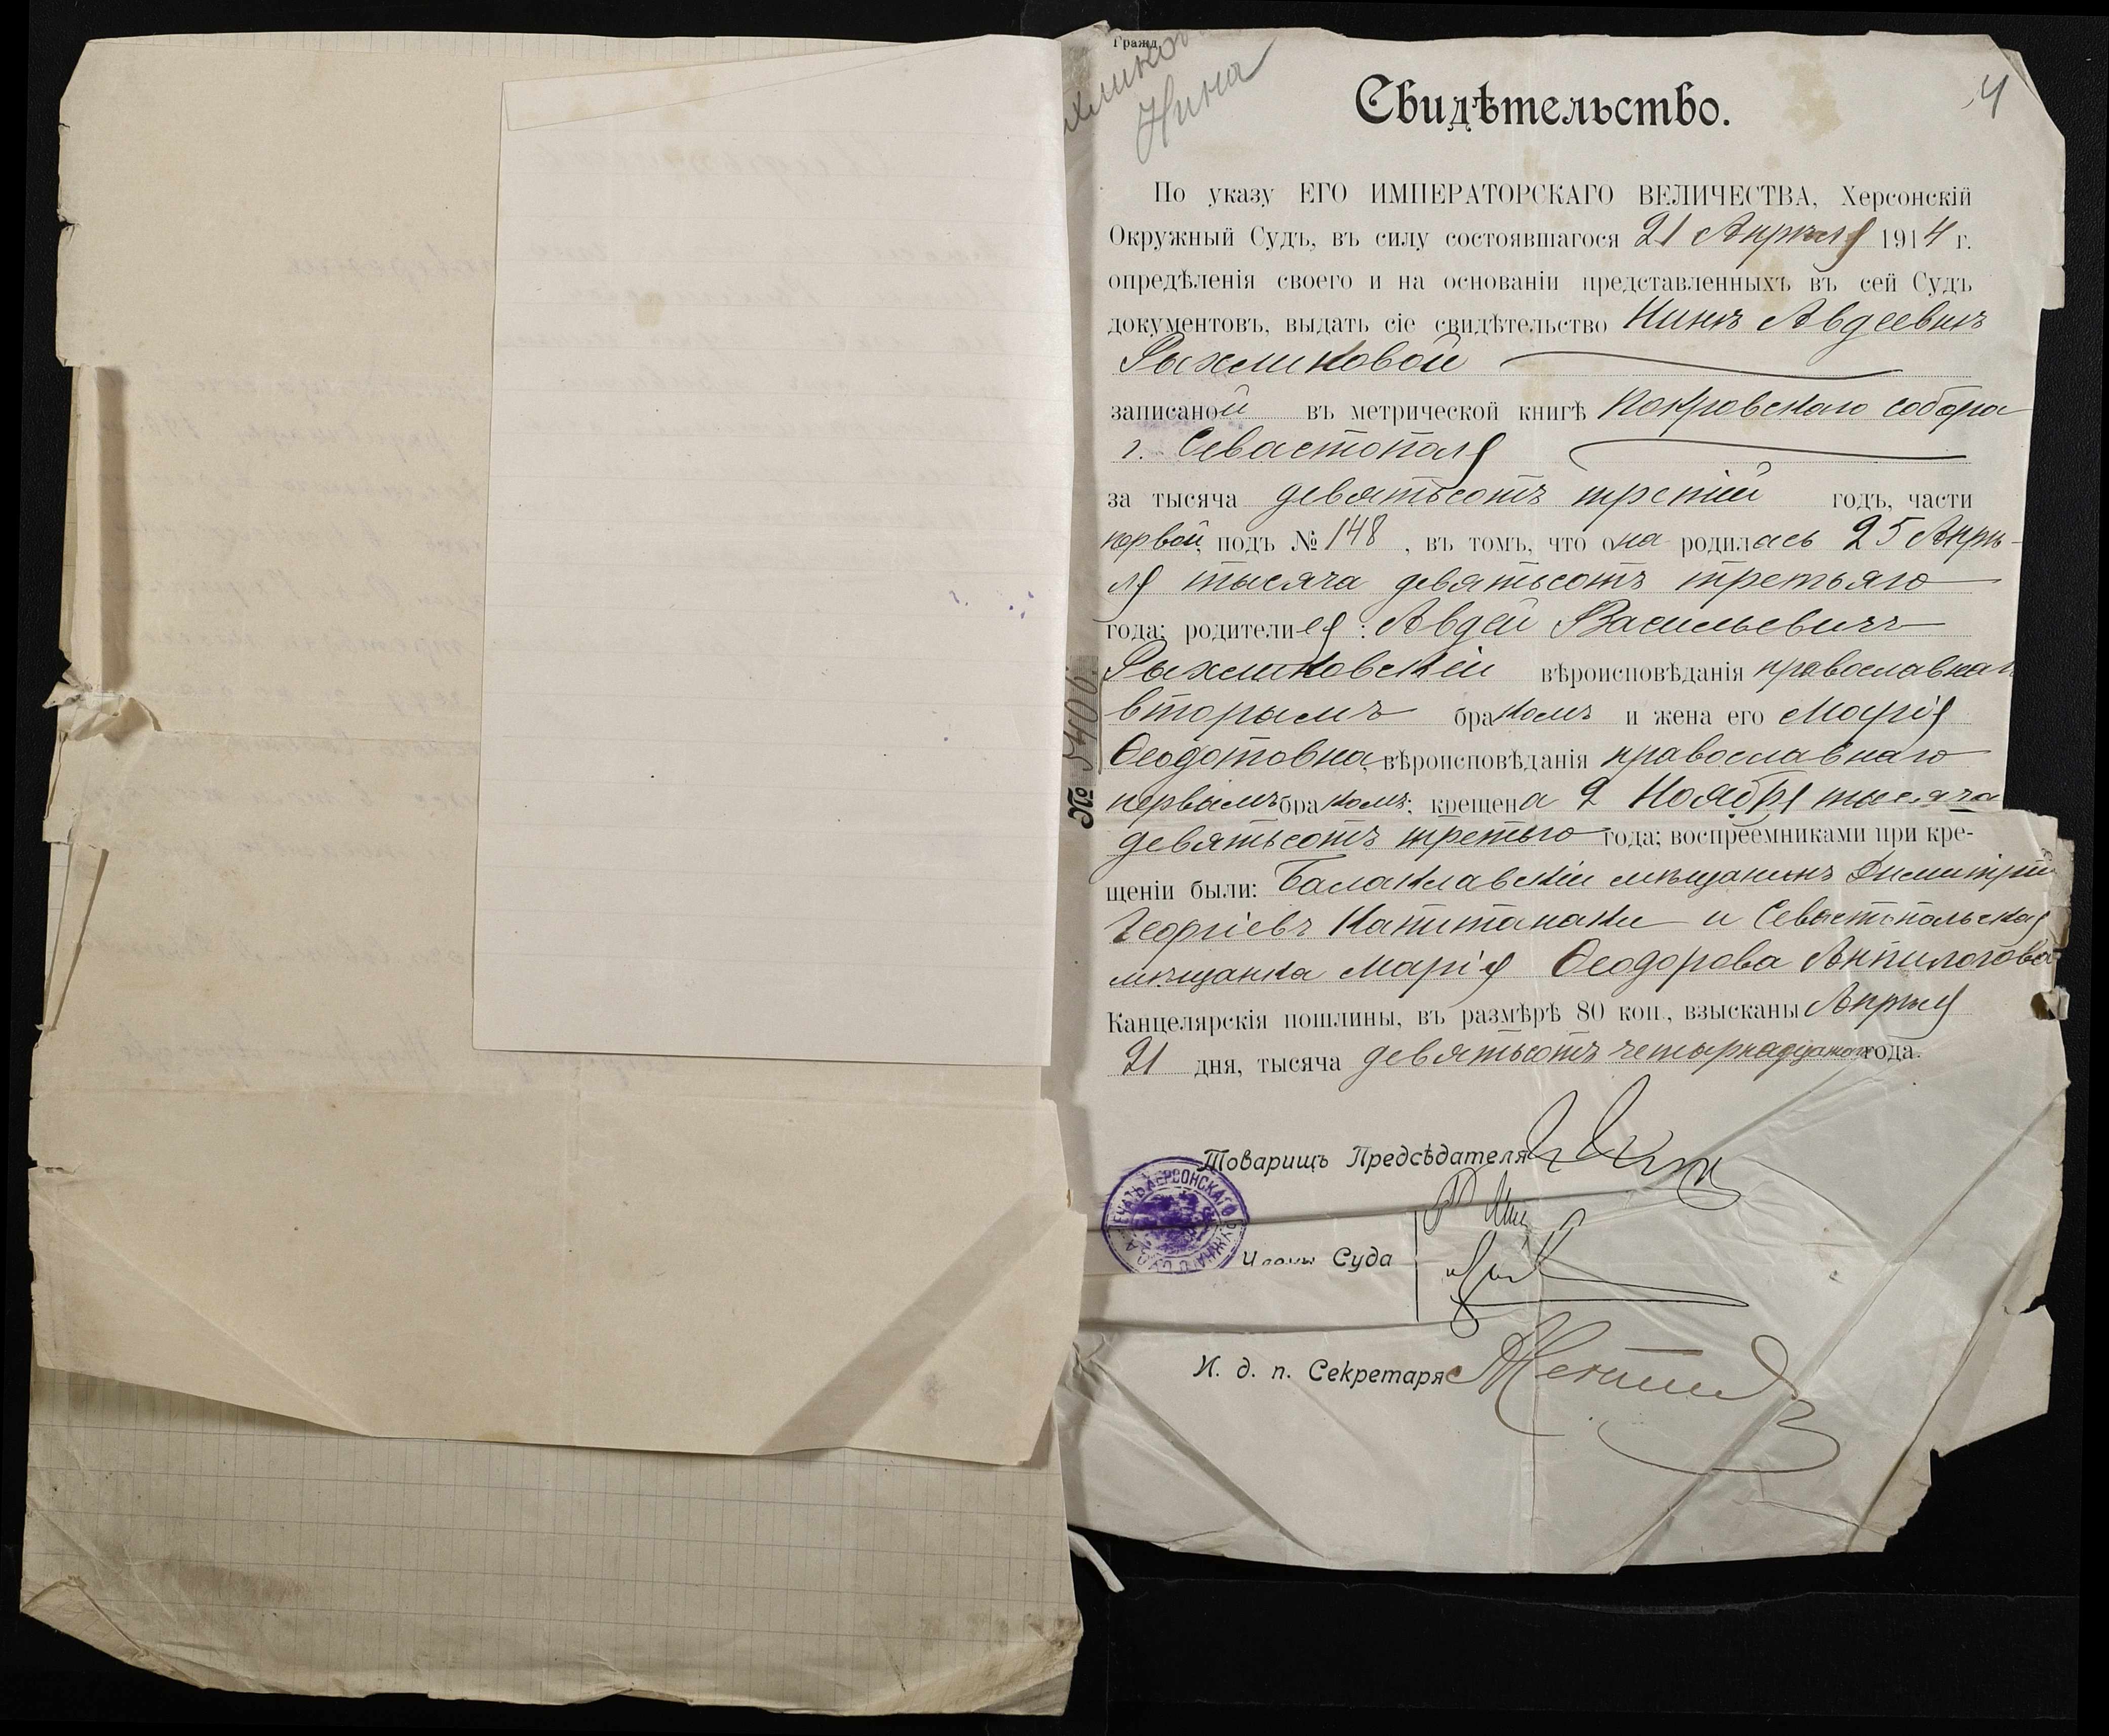 Гражд.
Нина
4
Свидѣтельство.
По указу ЕГО ИМПЕРАТОРСКАГО ВЕЛИЧЕСТВА, Херсонскій
Окружный Судъ, въ силу состоявшагося 21 Апрѣля 1914 г.
опредѣленія своего и на основаніи представленныхъ въ сей Судъ
документовъ, выдать сіе свидѣтельство Нинѣ Авдеевнѣ
Рыхликовой
записаной въ метрической книгѣ Покровскаго собора
г. Севастополя
за тысяча девятьсотъ третій годъ, части
первой, подъ № 148, въ томъ, что она родилась 25 Апрѣ-
ля тысяча девятьсотъ третьяго
года; родители ея: Авдей Васильевичъ
Рыхликовскій вѣроисповѣданія православнаг
вторымъ бракомъ и жена его Марія
Ѳеодотовна, вѣроисповѣданія православнаго
первымъ бракомъ; крещена 2 Ноября тысяча
девятьсотъ третьяго года; воспреемниками при кре-
щеніи были: Балаклавскій мѣщанинъ Димитрій
Георгіевъ Капитанаки и Севастопольская
мѣщанка Марія Ѳеодорова Анпилогова
Канцелярскія пошлины, въ размѣрѣ 80 коп., взысканы Апрѣля
21 дня, тысяча девятьсотъ четырнадцатаго года.
№ 5406.
Товарищъ Предсѣдателя
ПЕЧАТЬ ХЕРСОНСКАГО ОКРУЖНАГО СУДА
Члены Суда
И. д. п. Секретаря